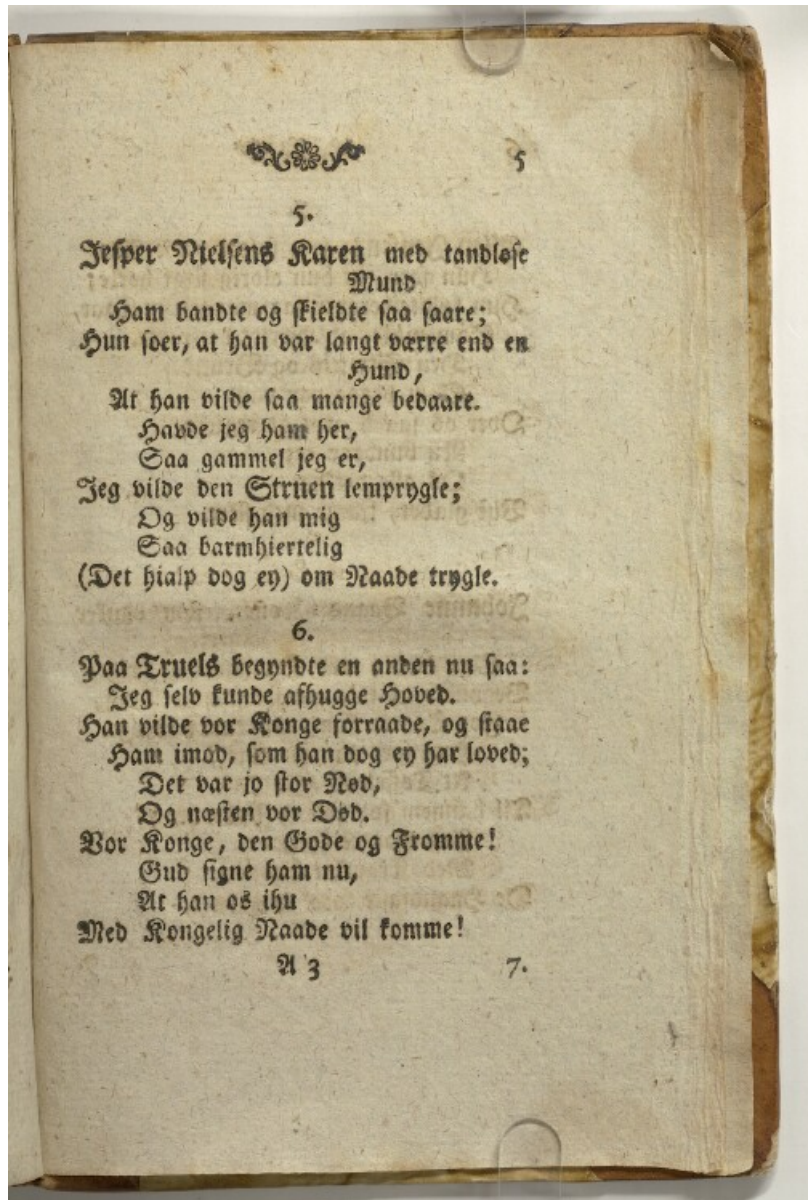 5
5.
Jesper Nielsens Karen med tandløse
Mund
Ham bandte og skieldte saa saare;
Hun soer, at han var langt værre end en
Hund,
At han vilde saa mange bedaare.
Havde jeg ham her,
Saa gammel jeg er,
Jeg vilde den Struen lemprygle;
Og vilde han mig
Saa barmhiertelig
(Det hialp dog ey) om Naade trygle.
6.
Paa Truels begyndte en anden nu saa:
Jeg selv kunde afhugge Hoved.
Han vilde vor Konge forraade, og staae
Ham imod, som han dog ey har loved;
Det var jo stor Nød,
Og næsten vor Død.
Vor Konge, den Gode og Fromme!
Gud signe ham nu,
At han os ihu
Med Kongelig Naade vil komme!
A 3 7.